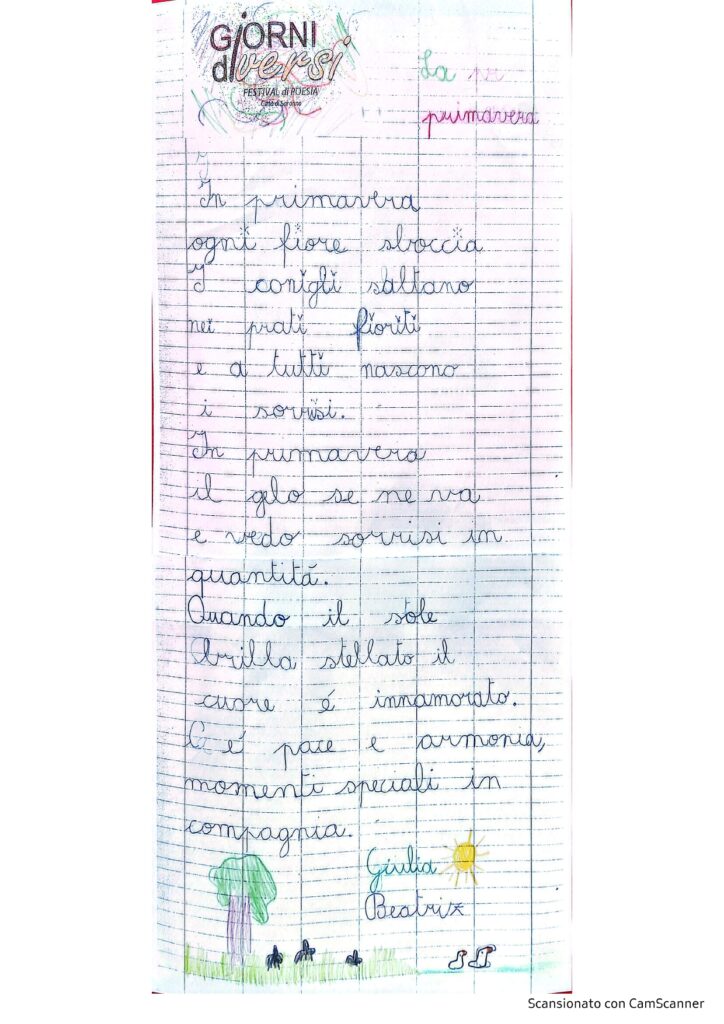 GiORNI
diversi
FESTIVAL di POESIA
Città di Saronno
La pr
primavera
In primavera
ogni fiore sboccia
I conigli saltano
nei prati fioriti
e a tutti nascono
i sorrisi.
In primavera
il gelo se ne va
e vedo sorrisi in
quantitá.
Quando il sole
brilla stellato il
cuore é innamorato.
C'é pace e armonia,
momenti speciali in
compagnia.
Giulia
Beatriz
Scansionato con CamScanner